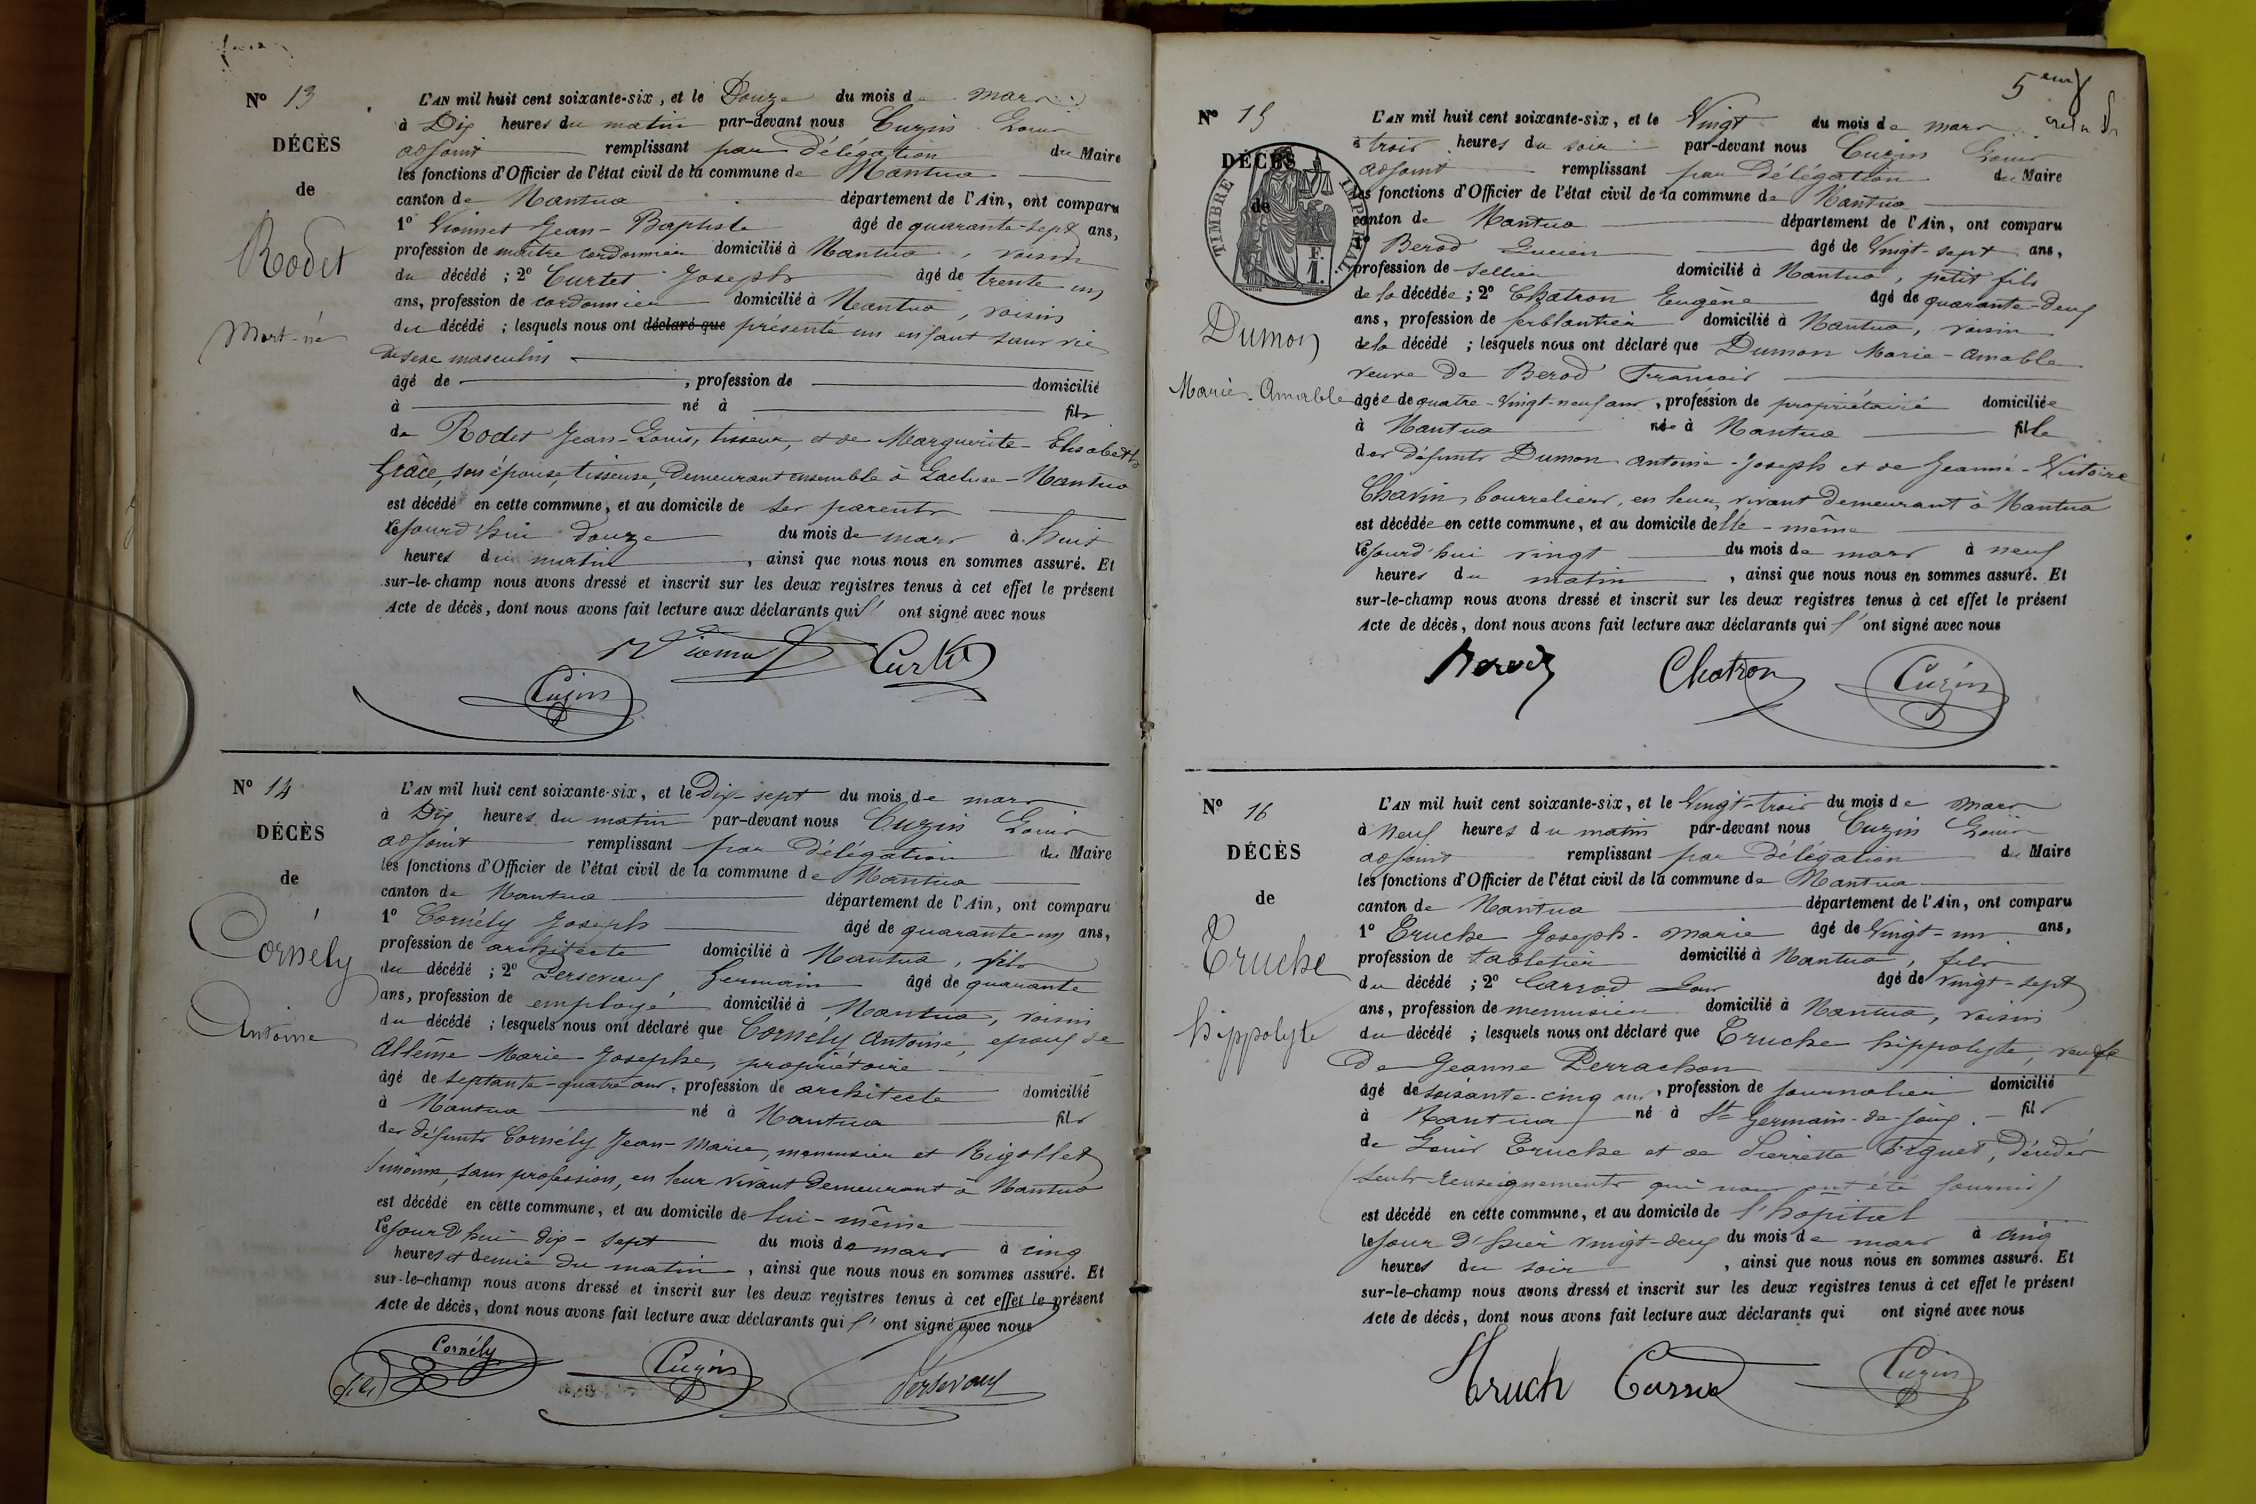 N° 13
DÉCÈS
de
Rodet
Mort-né
L'AN mil huit cent soixante-six, et le Douze du mois de mars
à Dix heures du matin par-devant nous Cuzin Louis
adjoint remplissant par délégation du Maire
les fonctions d'Officier de l'état civil de la commune de Nantua
canton de Nantua département de l'Ain, ont comparu
1° Vionnet Jean-Baptiste âgé de quarante-sept ans,
profession de maître cordonnier domicilié à Nantua, voisin
du décédé ; 2° Curtet Joseph âgé de trente un
ans, profession de cordonnier domicilié à Nantua, voisin
du décédé ; lesquels nous ont déclaré que présenté un enfant sans vie
de sexe masculin
âgé de , profession de domicilié
à né à fils
de Rodet Jean-Louis, tisseur, et de Marguerite-Elisabeth
Grâce, son épouse, tisseuse, demeurant ensemble à Lacluse-Nantua
est décédé en cette commune, et au domicile de ses parents
cejourd'hui douze du mois de mars à huit
heures du matin, ainsi que nous nous en sommes assuré. Et
sur-le-champ nous avons dressé et inscrit sur les deux registres tenus à cet effet le présent
Acte de décès, dont nous avons fait lecture aux déclarants qui l' ont signé avec nous
Curtet
Cuzin
N° 14
DÉCÈS
de
Cornély
Antoine
L'AN mil huit cent soixante-six, et le Dix-sept du mois de mars
à Dix heures du matin par-devant nous Cuzin Louis
adjoint remplissant par délégation du Maire
les fonctions d'Officier de l'état civil de la commune de Nantua
canton de Nantua département de l'Ain, ont comparu
1° Cornély Joseph âgé de quarante-un ans,
profession de architecte domicilié à Nantua, fils
du décédé ; 2° Persevaux Germain âgé de quarante
ans, profession de employé domicilié à Nantua, voisin
du décédé ; lesquels nous ont déclaré que Cornély Antoine, époux de
Allême Marie-Josephe, propriétaire
âgé de septante-quatre ans, profession de architecte domicilié
à Nantua né à Nantua fils
des défunts Cornély Jean-Marie, menuisier et Rigollet
Simonne, sans profession, en leur vivant demeurant à Nantua
est décédé en cette commune, et au domicile de lui-même
cejourd'hui dix-sept du mois de mars à cinq
heures et demie du matin, ainsi que nous nous en sommes assuré. Et
sur-le-champ nous avons dressé et inscrit sur les deux registres tenus à cet effet le présent
Acte de décès, dont nous avons fait lecture aux déclarants qui l' ont signé avec nous
Cornély
Cuzin
Persevaux
5eme
N° 15
DÉCÈS
de
TIMBRE IMPÉRIAL
Dumon
Marie-Amable
L'AN mil huit cent soixante-six, et le Vingt du mois de mars
à trois heures du soir par-devant nous Cuzin Louis
adjoint remplissant par délégation du Maire
les fonctions d'Officier de l'état civil de la commune de Nantua
canton de Nantua département de l'Ain, ont comparu
1° Berod Lucien âgé de Vingt-sept ans,
profession de sellier domicilié à Nantua, petit fils
de la décédée ; 2° Chatron Eugène âgé de quarante-deux
ans, profession de ferblantier domicilié à Nantua, voisin
de la décédé ; lesquels nous ont déclaré que Dumon Marie-Amable
veuve de Berod François
âgée de quatre-vingt-neuf ans, profession de propriétaire domiciliée
à Nantua née à Nantua fille
des défunts Dumon Antoine-Joseph et de Jeanne-Victoire
Chavin, bourreliers, en leur vivant demeurant à Nantua
est décédée en cette commune, et au domicile d'elle-même
cejourd'hui vingt du mois de mars à neuf
heures du matin, ainsi que nous nous en sommes assuré. Et
sur-le-champ nous avons dressé et inscrit sur les deux registres tenus à cet effet le présent
Acte de décès, dont nous avons fait lecture aux déclarants qui l' ont signé avec nous
Berod Chatron Cuzin
N° 16
DÉCÈS
de
Truche
hippolyte
L'AN mil huit cent soixante-six, et le Vingt-trois du mois de mars
à neuf heures du matin par-devant nous Cuzin Louis
adjoint remplissant par délégation du Maire
les fonctions d'Officier de l'état civil de la commune de Nantua
canton de Nantua département de l'Ain, ont comparu
1° Truche Joseph-Marie âgé de Vingt-un ans,
profession de tabletier domicilié à Nantua, fils
du décédé ; 2° Carrod Louis âgé de vingt-sept
ans, profession de menuisier domicilié à Nantua, voisin
du décédé ; lesquels nous ont déclaré que Truche hippolyte, veuf
de Jeanne Perrachon
âgé de soixante-cinq ans, profession de journalier domicilié
à Nantua né à St Germain-de-Joux fils
de Louis Truche et de Pierrette Erguet, décédés
(seuls renseignements qui nous ont été fournis)
est décédé en cette commune, et au domicile de l'hôpital
le jour d'hier vingt-deux du mois de mars à cinq
heures du soir, ainsi que nous nous en sommes assuré. Et
sur-le-champ nous avons dressé et inscrit sur les deux registres tenus à cet effet le présent
Acte de décès, dont nous avons fait lecture aux déclarants qui ont signé avec nous
Truch Cuzin